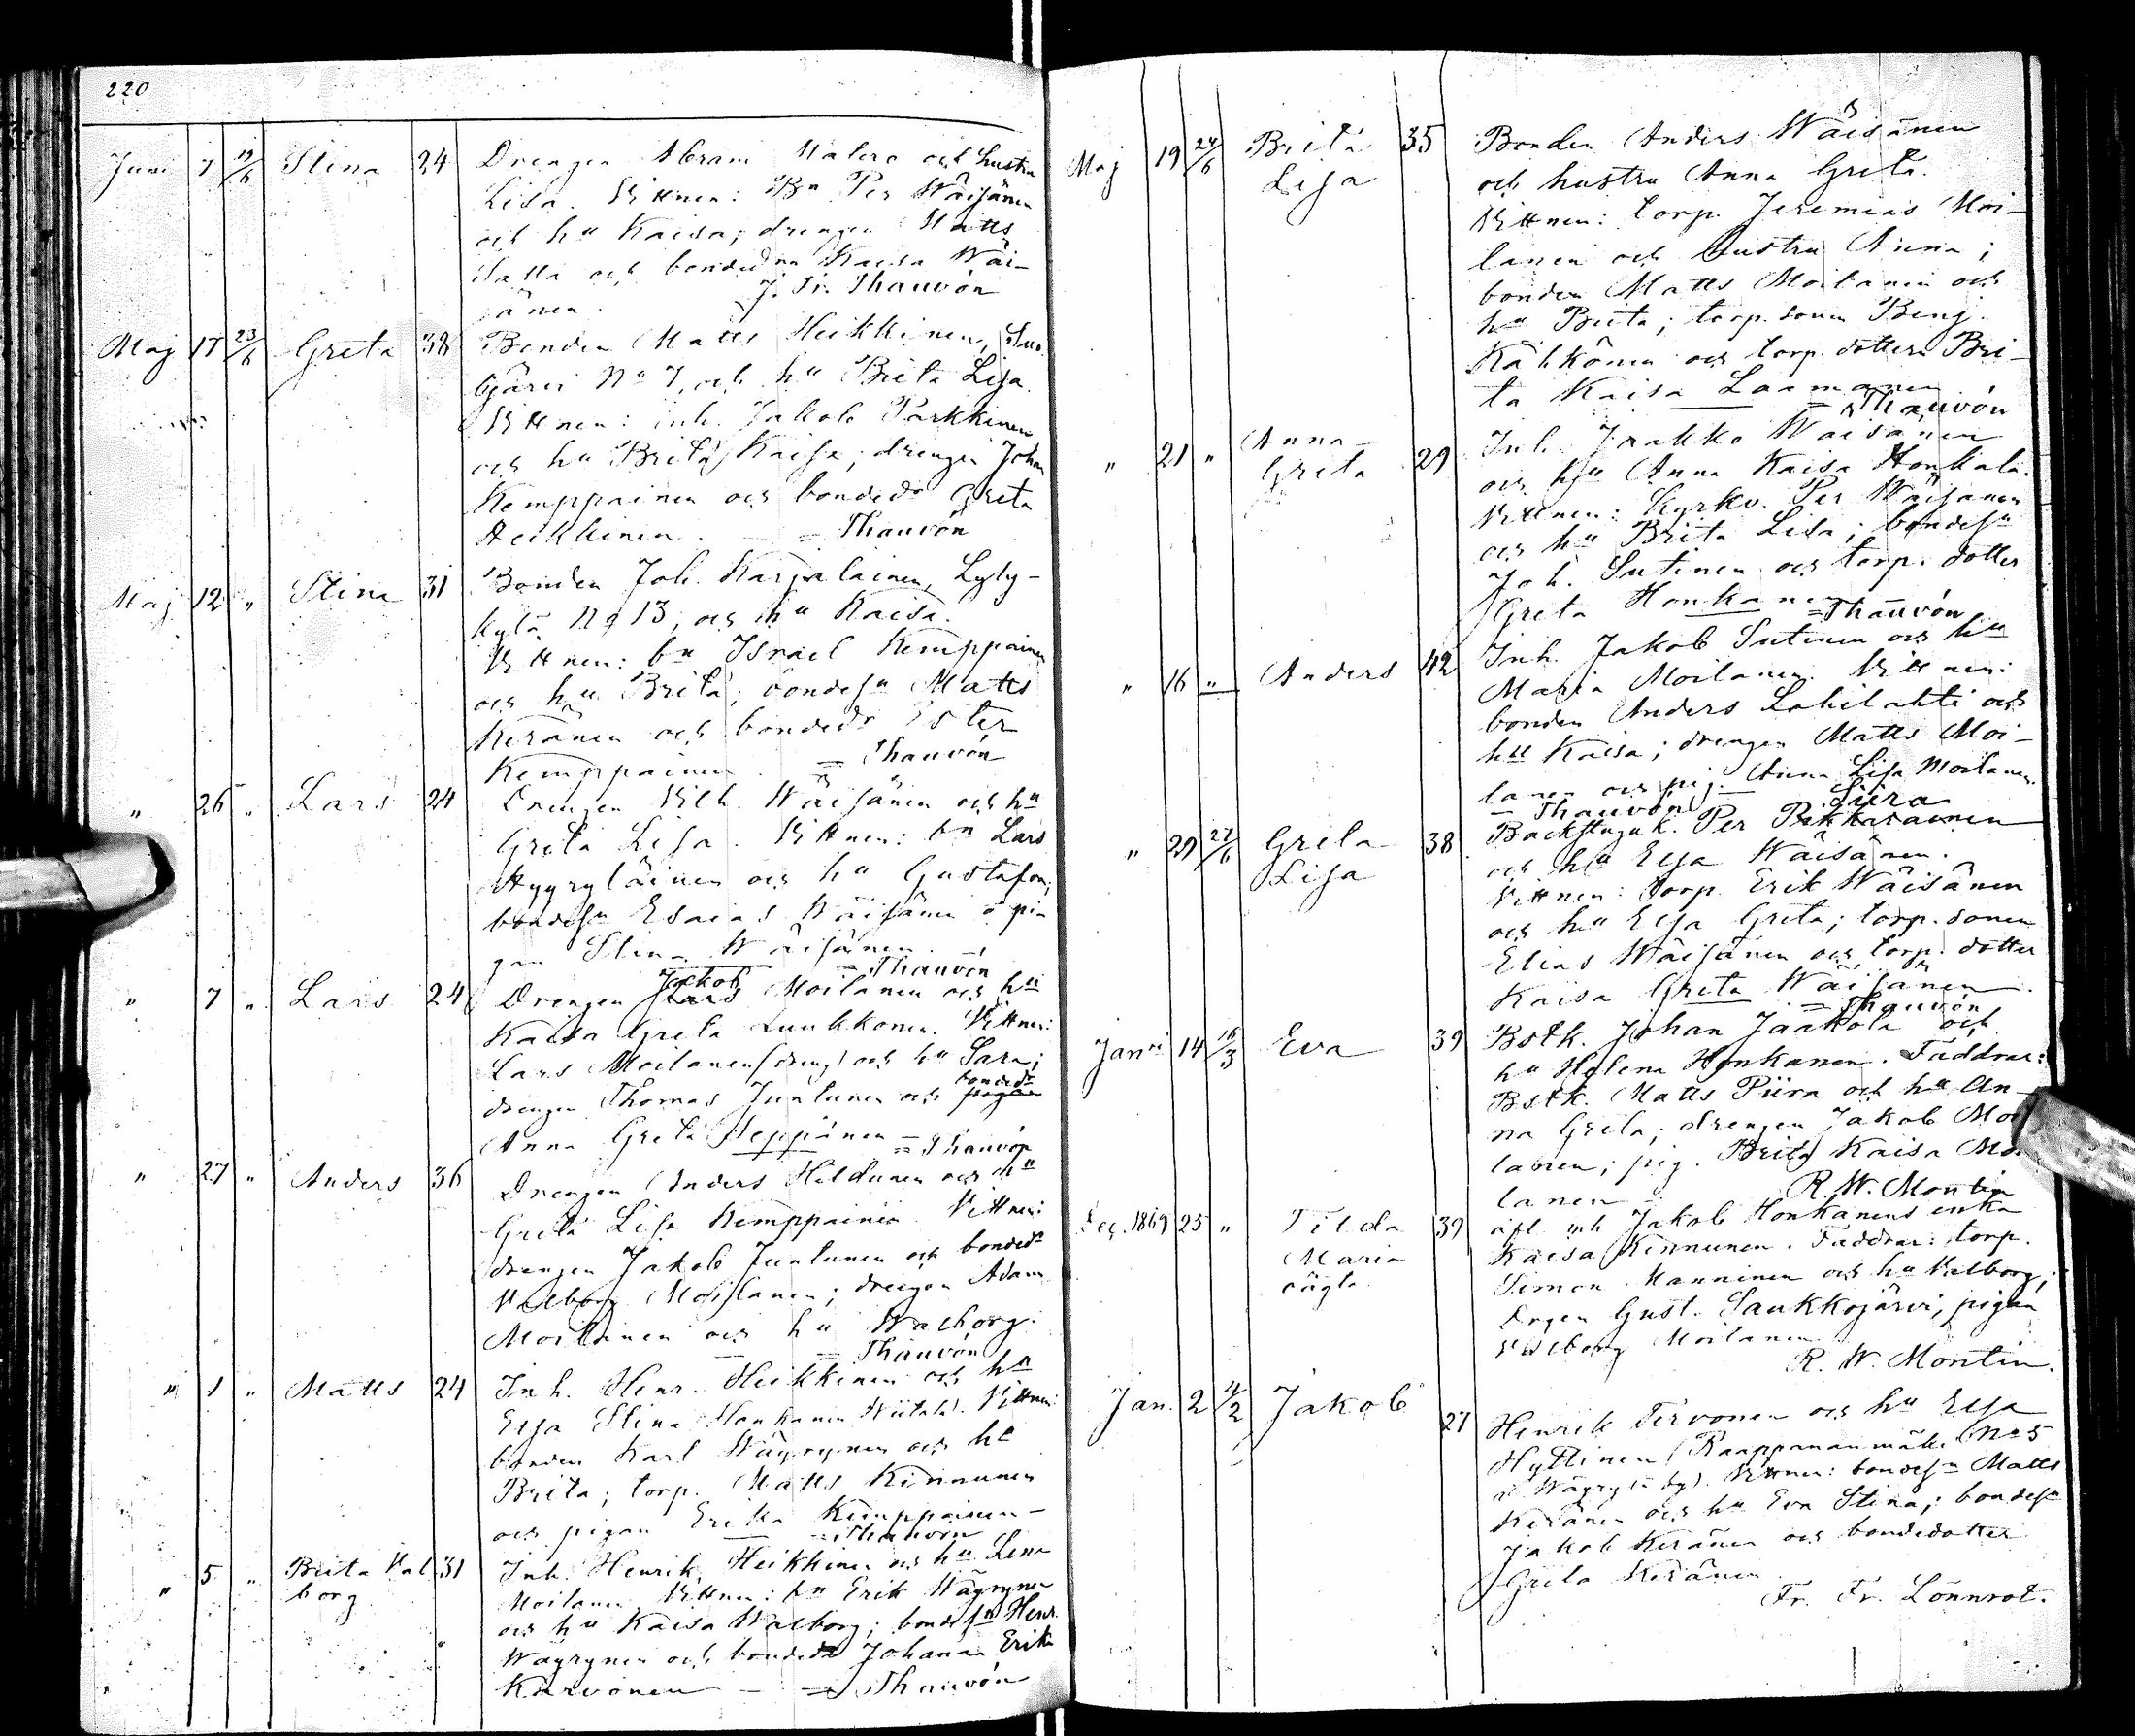 220
Juni 7 19/6 Stina 24 Drengen Abram Malero och hustru
Lisa. Vittnen: Bn Per Wäisänen
och hu Kaisa; drengen Matts
och bondedra Kaisa Wäi-
sänen. J. Fr. Thauvón
Maj 17 23/6 Greta 38 Bonden Matts Heikkinen,
No 7, och hu Brita Lisa.
Vittnen: inh. Jakob Parkkinen
och hu Brita Kaisa; drengen Johan
Kemppainen och bondedr Greta
Heikkinen. = Thauvón
Maj 12 " Stina 31 Bonden Joh. Karjalainen, Lyly-
kylä No 13, och hu Kaisa.
Vittnen: bn Israel Kemppainen
och hu Brita; bondesn Matts
Keränen och bondedr Ester
Kemppainen. = Thauvón
" 26 " Lars 24 Drengen Vilh. Wäisänen och hu
Greta Lisa. Vittnen: bn Lars
Hyyryläinen och hu Gustafva;
bondesn Esaias Wäisänen o pi-
gan Stina Wäisänen.
= Thauvón
Jakob
" 7 " Lars 24 Drengen Lars Moilanen och hu
Kaisa Greta Luukkonen. Vittnen:
Lars Moilanen (dreng) och hu Sara;
bondedr
drengen Thomas Juntunen och pigan
Anna Greta Seppänen = Thauvón
" 27 " Anders 36 Drengen Anders Hildunen och hu
Greta Lisa Kemppainen. Vittnen:
drengen Jakob Juntunen och bondedr
Valborg Moilanen; drengen Adam
Moilanen och hu Walborg.
= Thauvón
" 1 " Matts 24 Inh. Henr. Heikkinen och hu
Elsa Stina Honkanen Vittnen:
bonden Karl Wäyrynen och hu
Brita; torp. Matts Kinnunen
och pigan Erika Kemppainen -
= Thauvón
" 5 " Brita Val 31 Inh. Henrik Heikkinen och hu Lena
borg Moilanen. Vittnen: bn Erik Wäyrynen
och hu Kaisa Walborg; bondesn Henr.
Wäyrynen och bondedr Johanna Erika
Karvonen - = Thauvón
Maj 19 24/6 Brita 35 Bonden Anders Wäisänen
Lisa och hustru Anna Greta.
Vittnen: torp. Jeremias Moi-
lanen och hustru Anna;
bonden Matts Moilanen och
hu Brita; torp. sonen Benj.
Kähkönen och torp. dottern Bri-
ta Kaisa Laamanen
= Thauvón
" 21 " Anna 29 Inh. Jaakko Wäisänen
Greta och hu Anna Kaisa Honkala.
Vittnen: Kyrkv. Per Wäisänen
och hu Brita Lisa; bondesn
Joh. Sutinen och torp. dotter
Greta Honkanen
= Thauvón
" 16 " Anders 42 Inh. Jakob Sutinen och hu
Maria Moilanen. Vittnen:
bonden Anders Lahilahti och
hu Kaisa; drengen Matts Moi-
lanen och pig. Anna Lisa Moilanen.
= Thauvón Piira
" 29 27/6 Greta 38 Backstuguk. Per Pikkarainen
Lisa och hu Elsa Wäisänen.
Vittnen: torp. Erik Wäisänen
och hu Elsa Greta; torp. sonen
Elias Wäisänen och torp. dotter
Kaisa Greta Wäisänen.
= Thauvón
Janri 14 16/3 Eva 39 Bstk. Johan Jaakola och
hu Helena Honkanen. Faddrar:
Bstk. Matts Piira och hu An-
na Greta; drengen Jakob Moi
lanen; pig. Brita Kaisa Moi
lanen
R. W. Montin
Dec. 1869 25 " Tilda 39 afl. inh Jakob Honkanens enka
Maria Kaisa Kinnunen. Faddrar: torp.
oägta Simon Manninen och hu Valborg;
Drgen Gust. Saukkojärvi, pigan
Valborg Moilanen
R. W. Montin.
Jan. 2 4/2 Jakob 27 Henrik Tervonen och hu Elsa
Hyttinen (Raappananmäki No 5
Vittnen: bondesn Matts
Keränen och hu Eva Stina; bondesn
Jakob Keränen och bondedotter
Greta Keränen
Fr. Fr. Lönnrot.